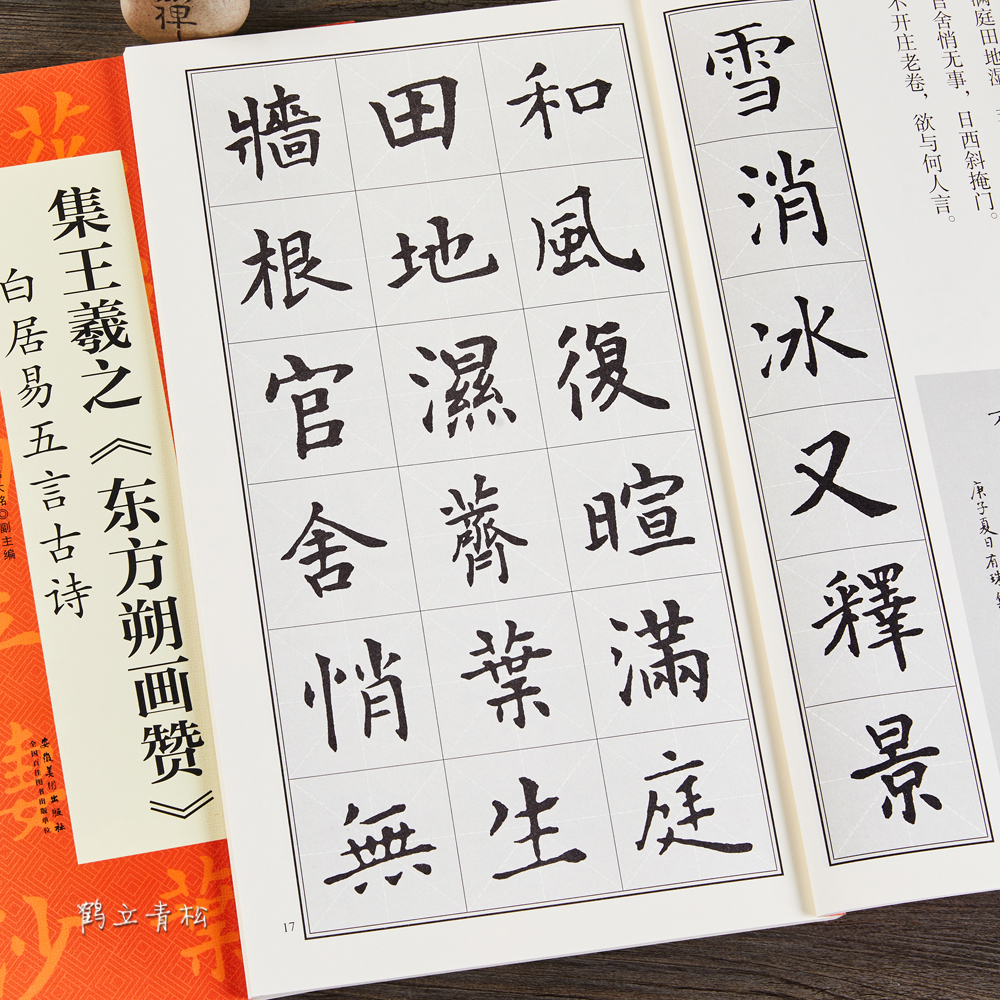 满庭田地湿
官舍悄无事，日西斜掩门。
不开庄老卷，欲与何人言。
庚子夏日有
雪消冰又釋景
和風復暄滿庭
田地濕薺葉生
牆根官舍悄無
17
集王羲之《东方朔画赞》
白居易五言古诗
◎副主编
安徽美术出版社
全国百佳图书出版单位
鹤立青松
禪